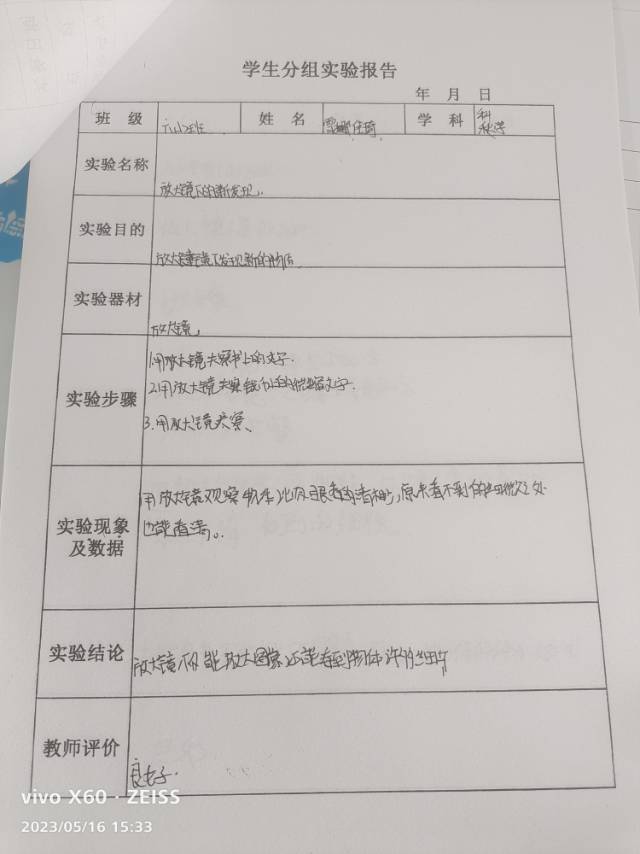 学生分组实验报告
年 月 日
班 级 姓 名 学 科 科
实验名称
放大镜下的新发现.
实验目的
放大镜下发现新的物体
实验器材
放大镜,
实验步骤
1.用放大镜观察书上的文字.
2.用放大镜观察纸币上的文字.
3.用放大镜观察、
实验现象
及数据
用放大镜观察物体比用眼看的清楚,原来看不到的细微之处
也能看清。
实验结论
放大镜不仅能放大图像,还能看到物体许多细节
教师评价
良好.
vivo X60 · ZEISS
2023/05/16 15:33